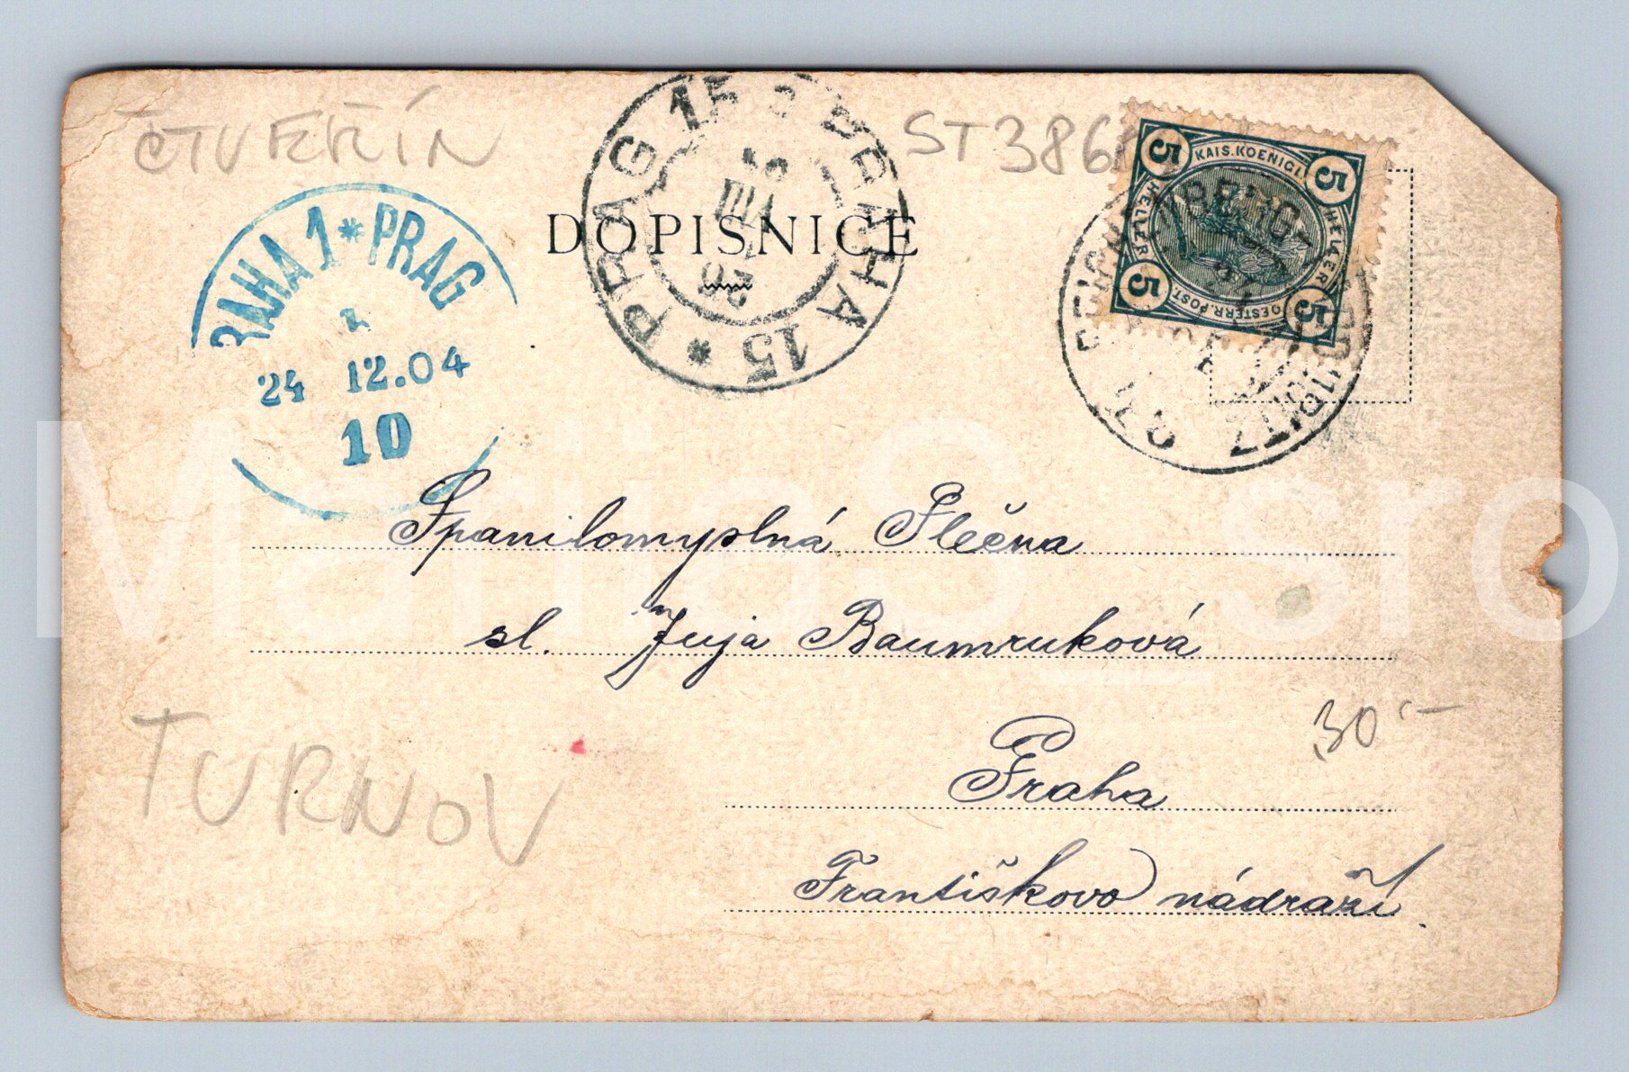 ČTVEŘÍN
ST386
PRAG 15 PRAHA 15 *
VIII
KAIS. KOENIGL.
OESTERR. POST.
HELLER HELLER
5 5
5 5
RAHA 1 * PRAG
24 12.04
10
DOPISNICE
Spanilomyslná Slečna
sl. Juja Baumruková
Praha
Františkovo nádraží.
TURNOV
30'-
MarijaS_sro